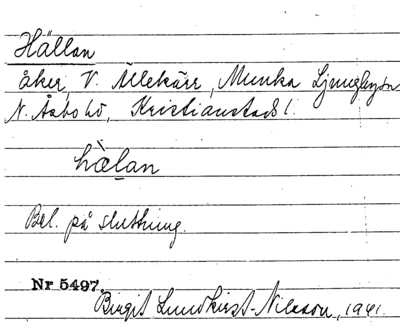 Hällan
åker, V. Ällekärr, Munka Ljungby sn
N. Åsbo hd, Kristianstads l.
hälan
Bel. på sluttning.
Nr 5497.
Birgit Lundkvist-Nilsson, 1941.